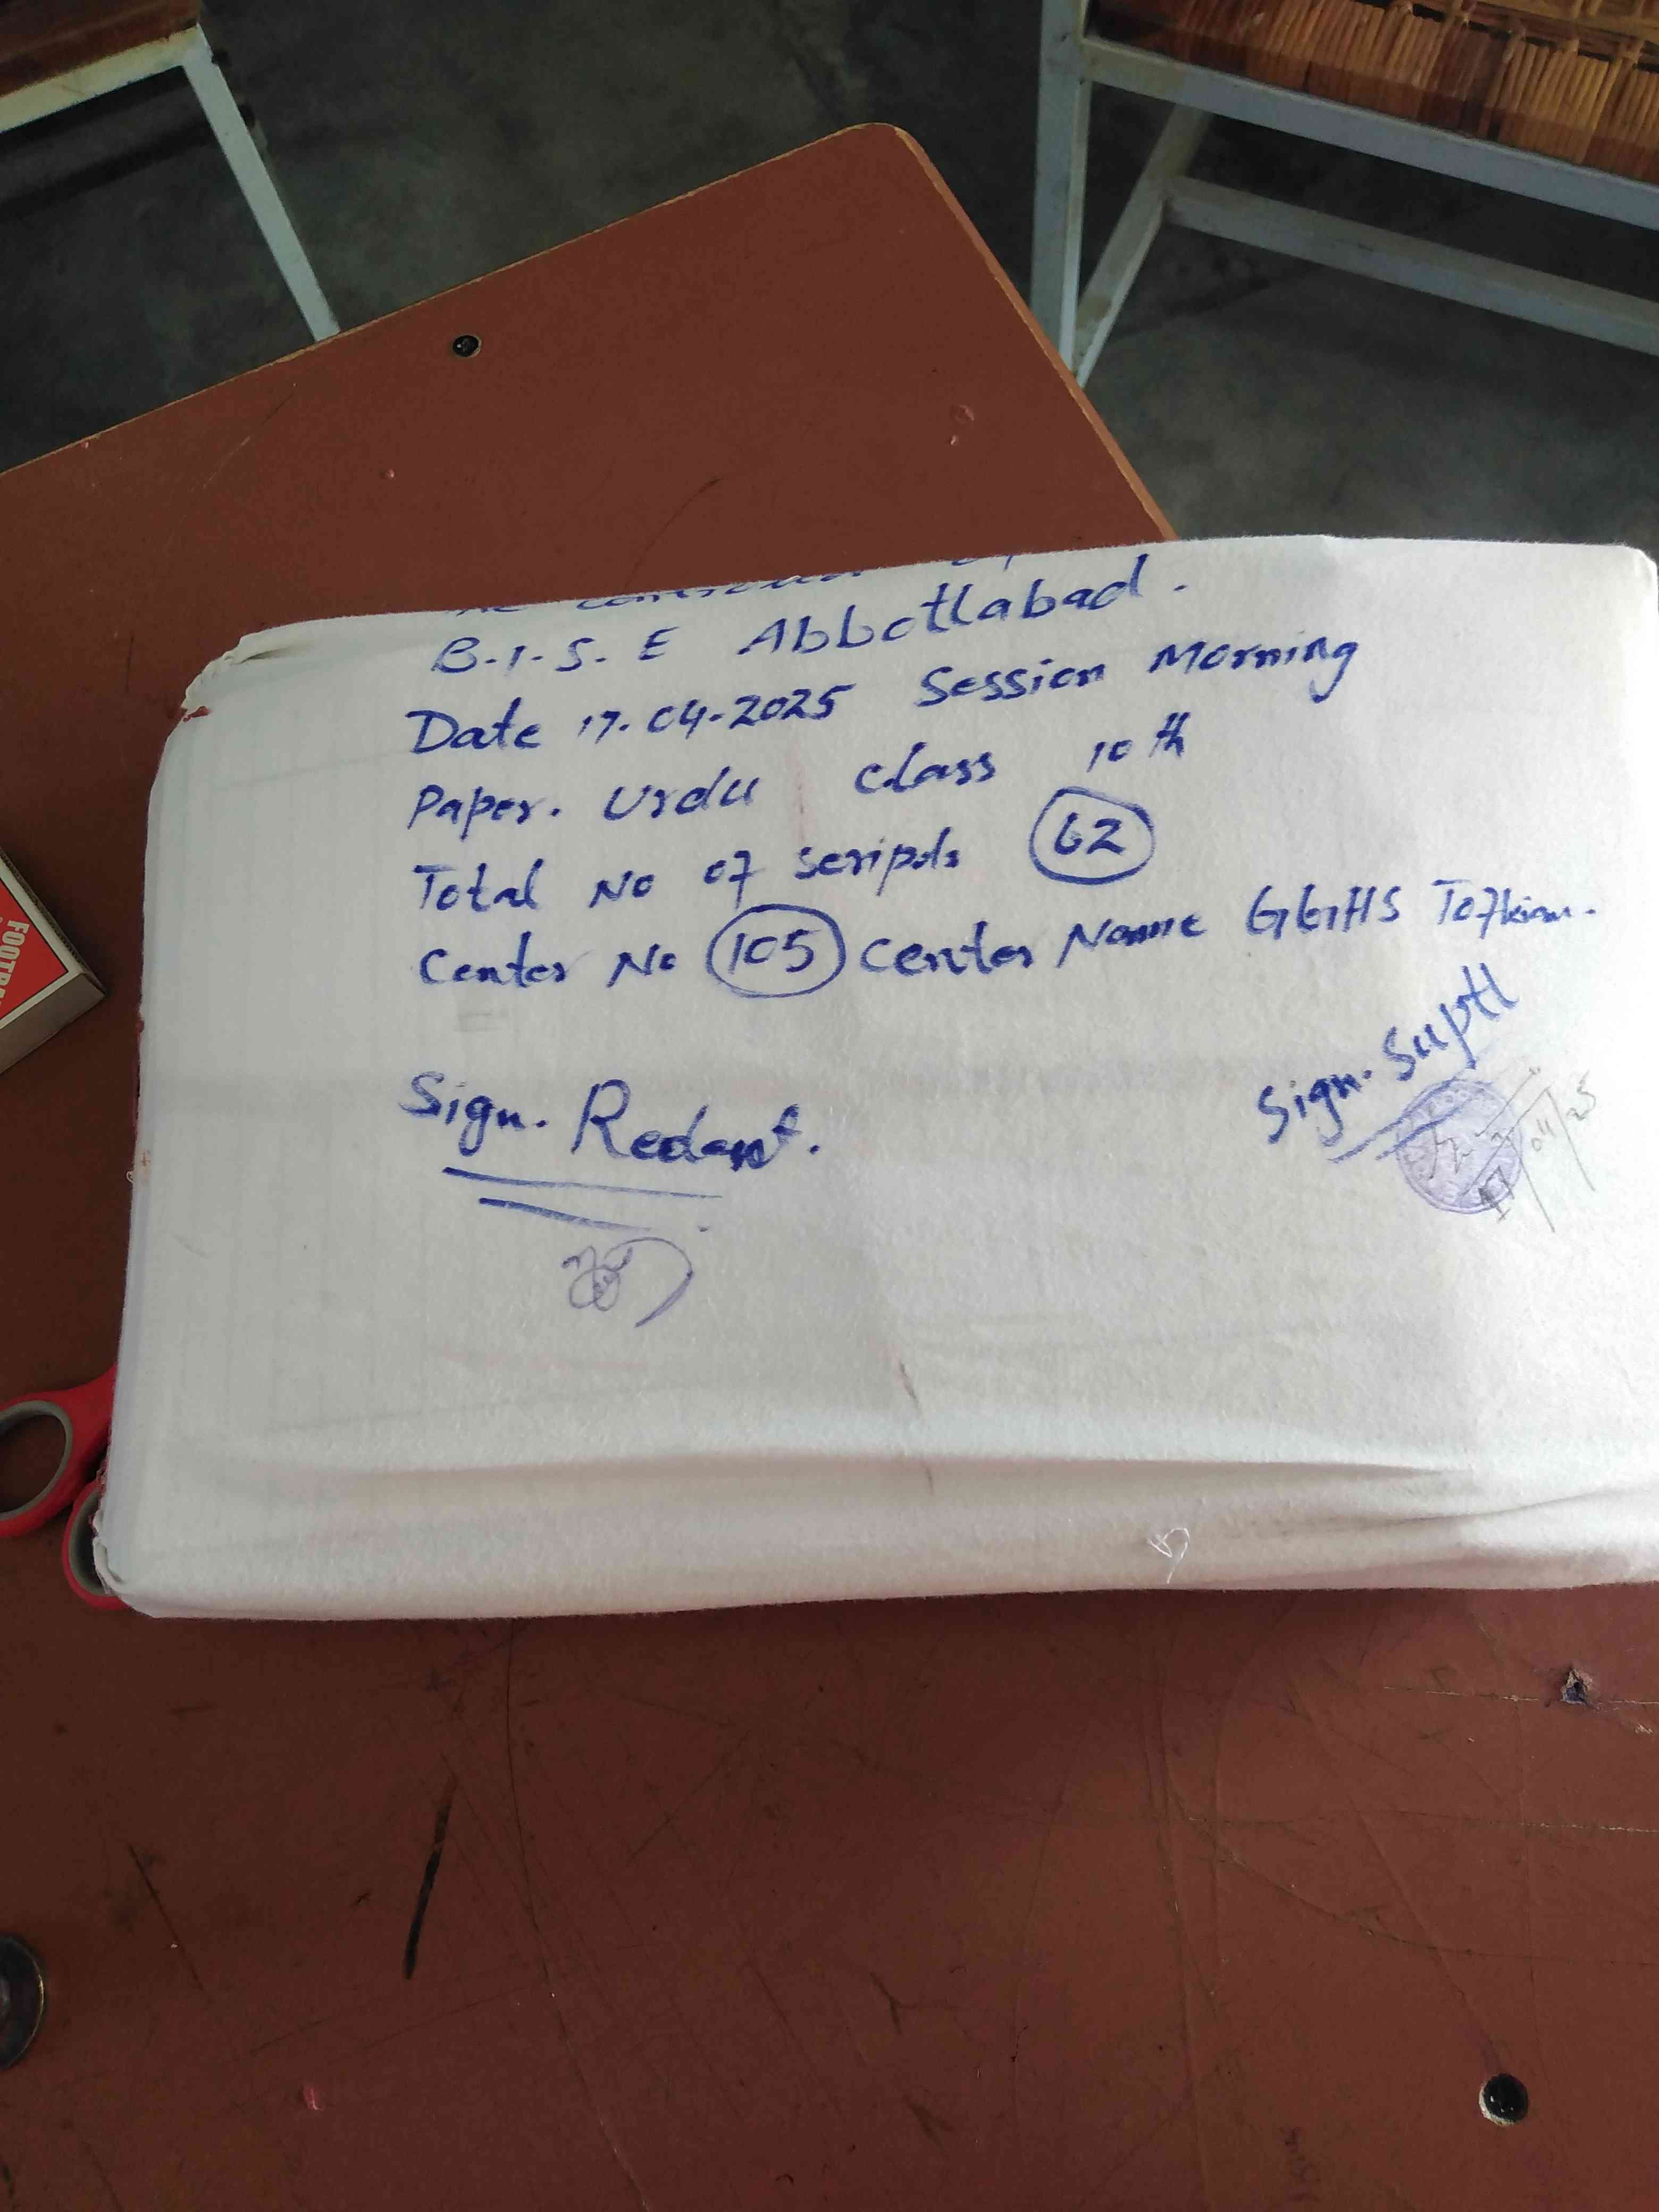 B.I.S.E Abbottabad.
Date 17.04.2025 Session Morning
Paper. Urdu Class 10th
Total No of scripts 62
Center No 105 Center Name GGHS Tofkian.
Sign. Suptt
17/04/25
Sign. Redant.
FOOTBA